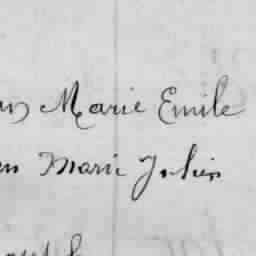 Marie Emile
en Marie Julien